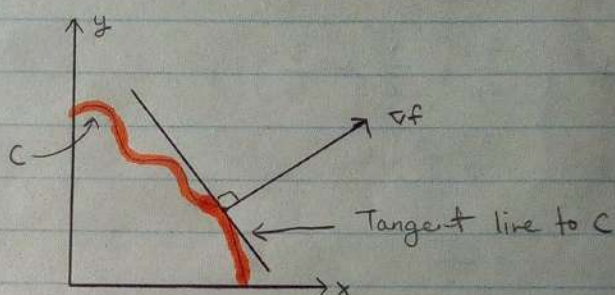 y
∇f
C
Tangent line to C
x